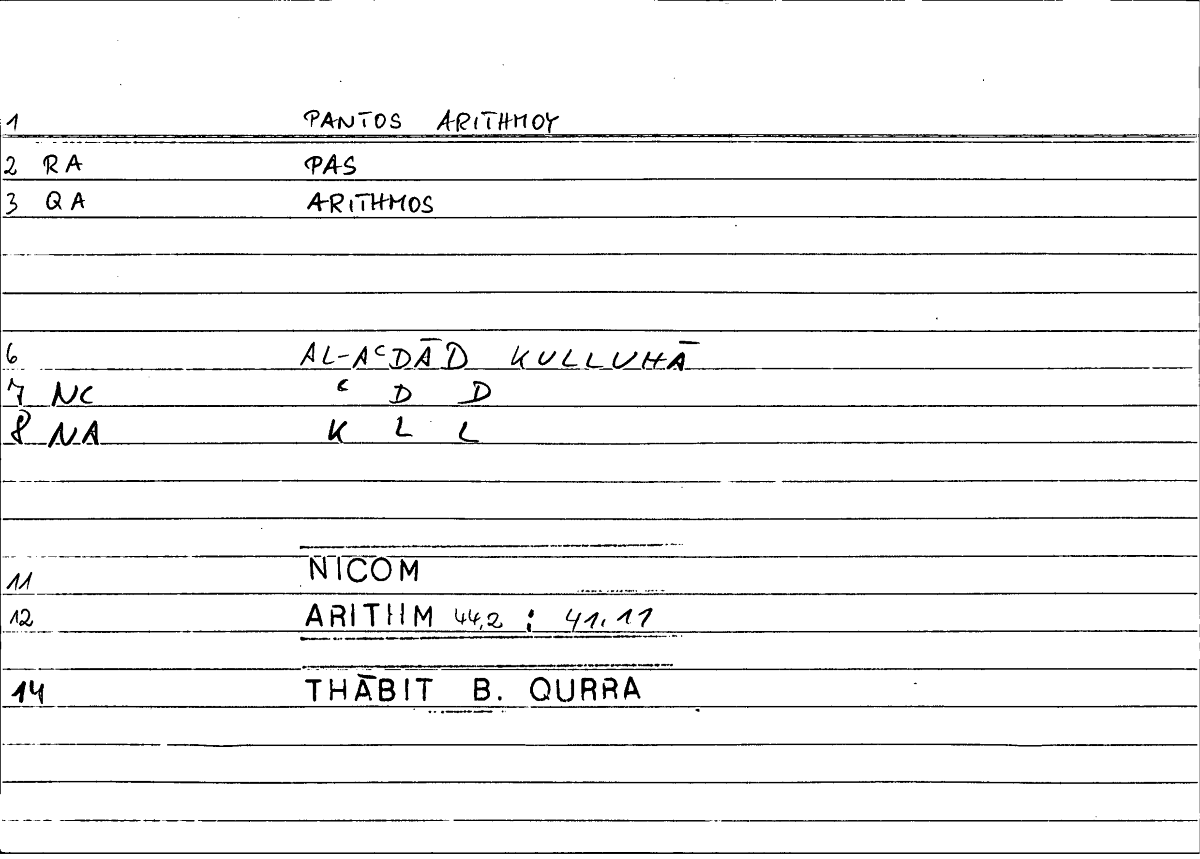 1 PANTOS ARITHMOY
2 RA PAS
3 QA ARITHMOS
6 AL-AʿDĀD KULLUHĀ
7 NC ʿ D D
8 NA K L L
11 NICOM
12 ARITHM 44,2 : 41,11
14 THĀBIT B. QURRA